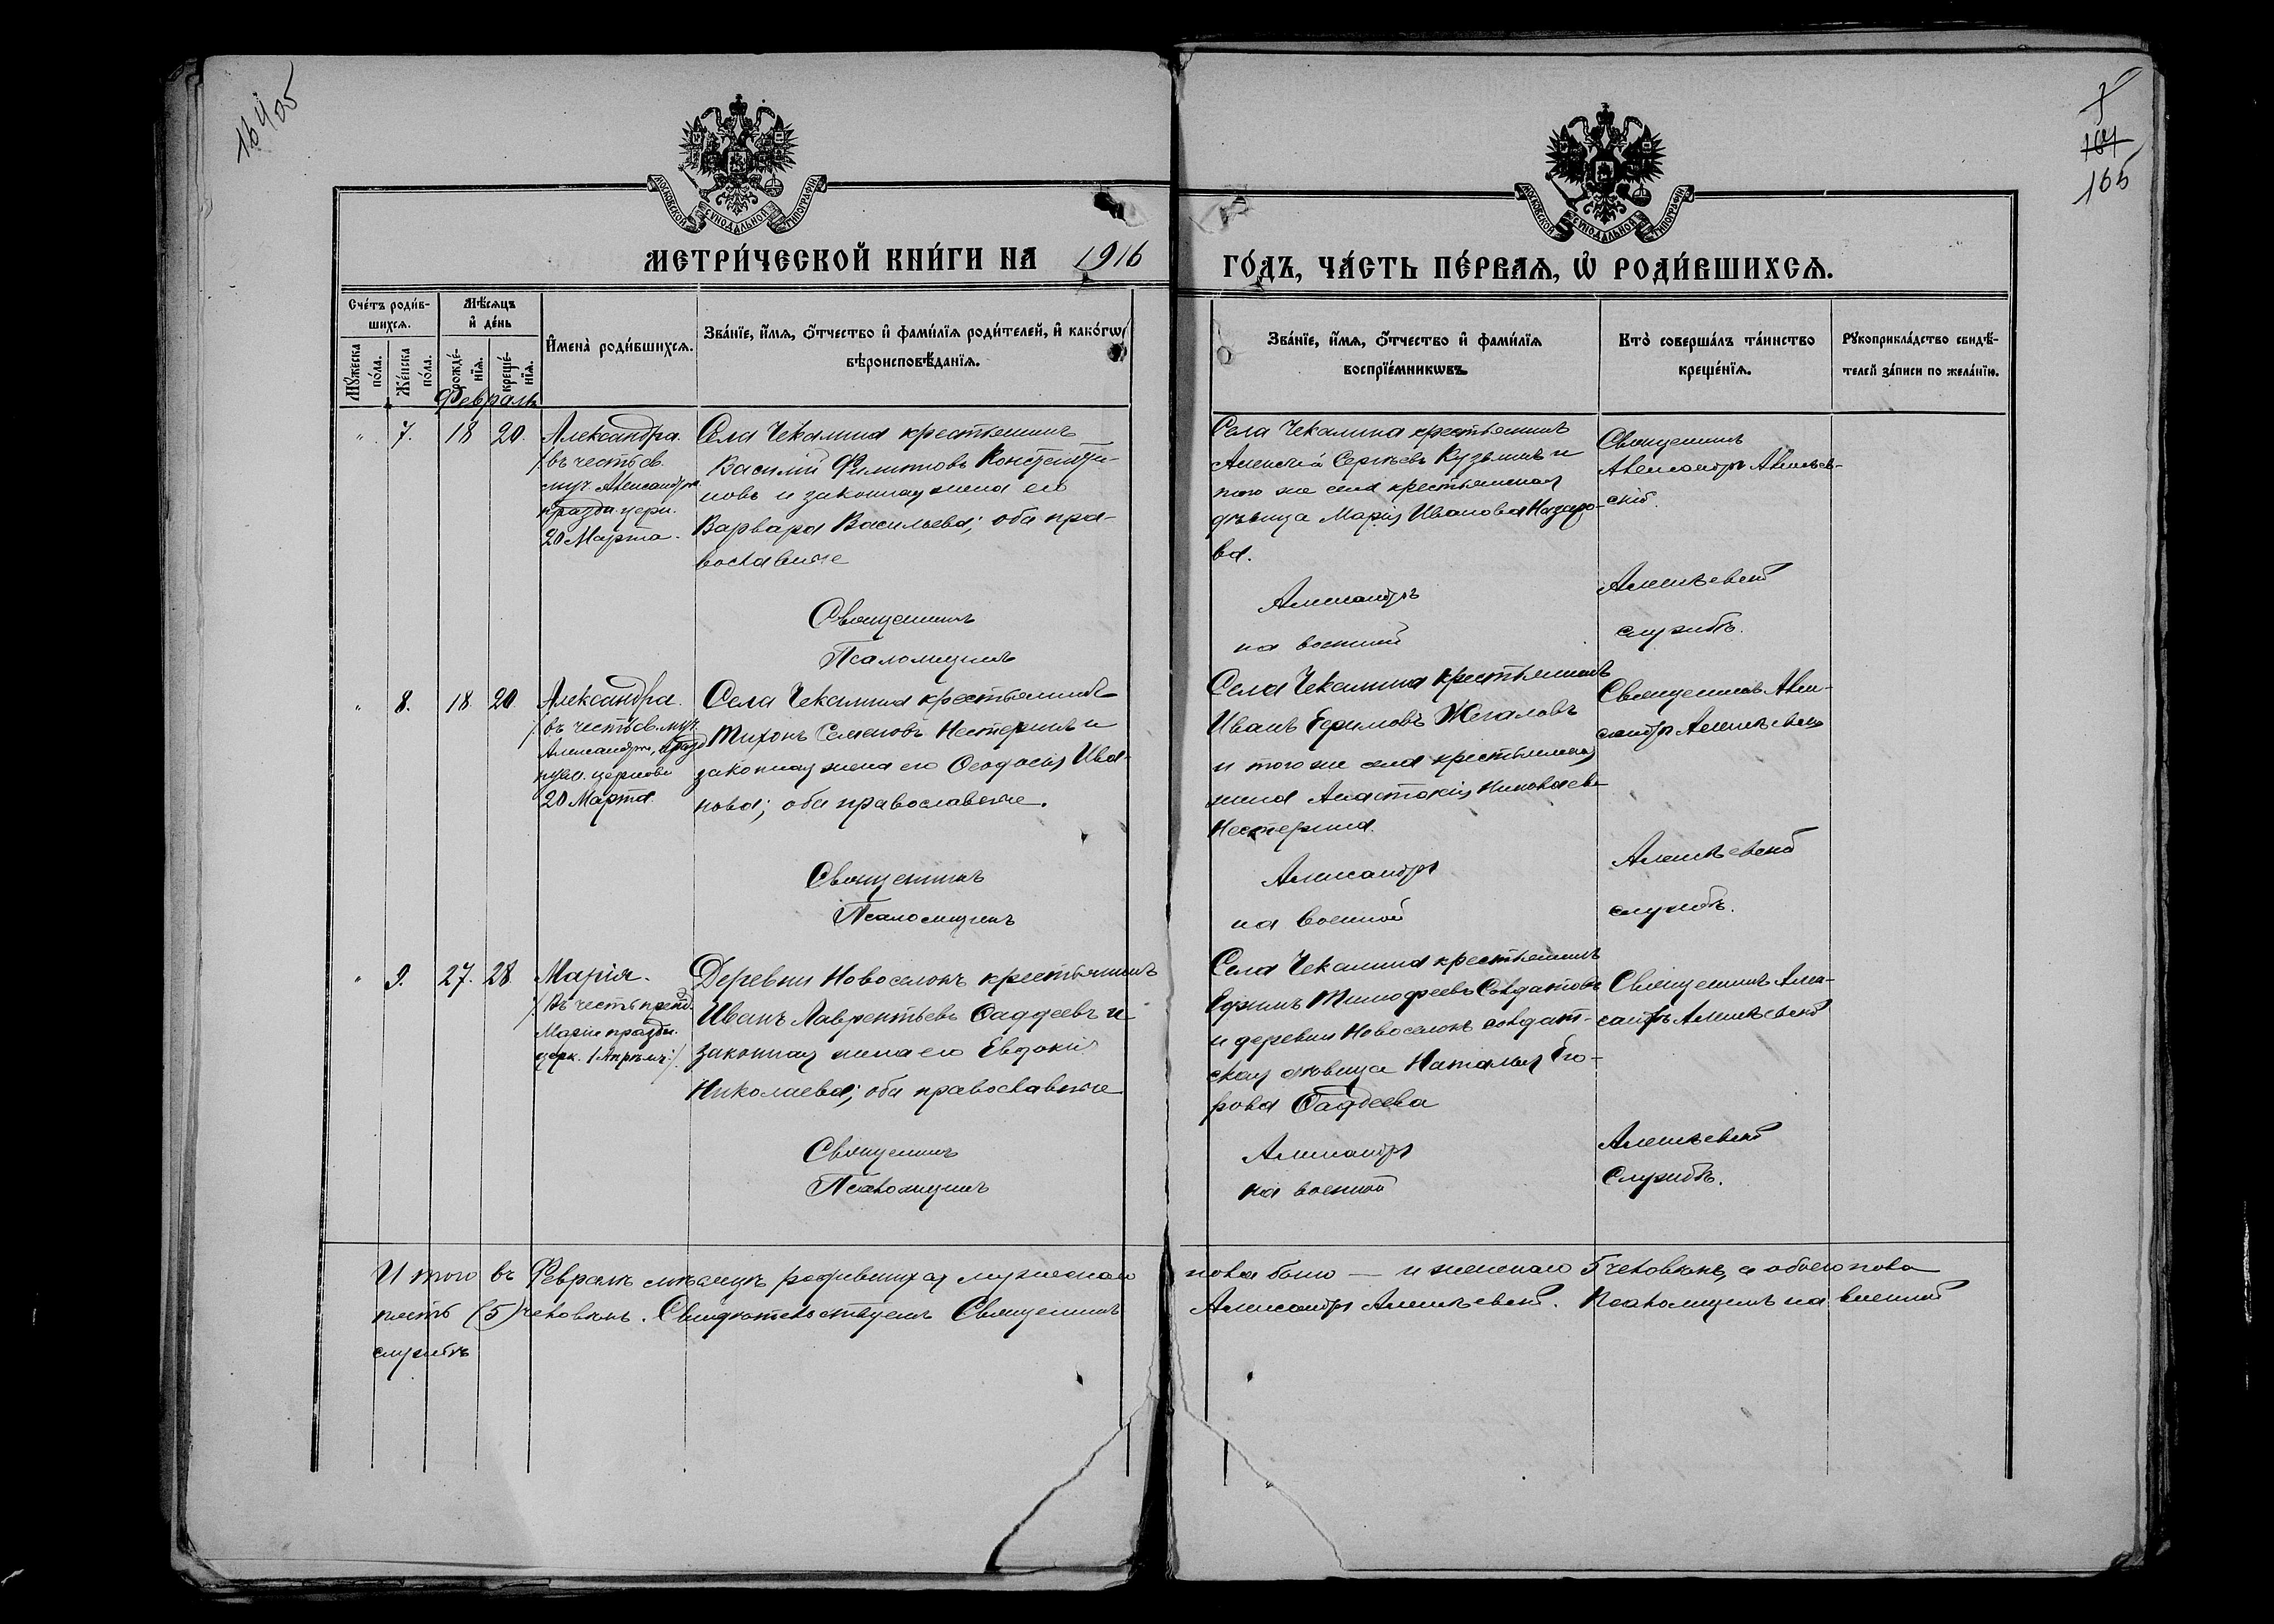 164об
165
МОСКОВСКОЙ СѴНОДАЛЬНОЙ ТИПОГРАФІИ
МОСКОВСКОЙ СѴНОДАЛЬНОЙ ТИПОГРАФІИ
МЕТРИ́ЧЕСКОЙ КНИ́ГИ НА 1916 ГО́ДЪ, ЧА́СТЬ ПЕ́РВАЯ, Ѡ҆ РОДИ́ВШИХСЯ.
Сче́тъ роди́в-
шихся.
Мѣ́сяцъ
и҆ де́нь
Мꙋ́жеска по́ла.
Же́нска по́ла.
рожде́-
нїя.
креще́-
нїя.
И҆мена̀ роди́вшихся.
Зва́нїе, и҆́мя, ѻ҆́тчество и҆ фами́лїя роди́телей, и҆ како́гѡ
вѣроисповѣ́данїя.
Зва́нїе, и҆́мя, ѻ҆́тчество и҆ фами́лїя
воспрїе́мникѡвъ.
Кто̀ соверша́лъ та́инство
креще́нїя.
Рꙋкоприкла́дство свидѣ́-
телей за́писи по жела́нїю.
Февраль
" 7. 18 20.
Александра.
/въ честь св.
муч. Александры
празд. церк.
20 Марта.
Села Чекалина крестьянинъ
Василій Филиповъ Константи-
новъ и законная жена его
Варвара Васильева; оба пра-
вославные
Священникъ
Псаломщикъ
Села Чекалина крестьянинъ
Алексѣй Сергѣевъ Кузьминъ и
того же села крестьянская
дѣвица Марія Иванова Назаро-
ва.
Александръ
на военной
Священникъ
Александръ Алешев-
скій.
Алешевскій
службѣ.
" 8. 18 20
Александра.
/въ честь св. муч.
Александры, празд
прав. церковію
20 Марта.
Села Чекалина крестьянинъ
Тихонъ Семеновъ Нестеринъ и
законная жена его Ѳеодосія Ива-
нова; оба православные.
Священникъ
Псаломщикъ
Села Чекалина крестьянинъ
Иванъ Ефимовъ Жегаловъ
и того же села крестьянская
жена Анастасія Николаева
Нестерина.
Александръ
на военной
Священникъ Алек-
сандръ Алешевскій
Алешевскій
службѣ.
" 9. 27. 28
Марія.
/Въ честь преп.
Маріи празд.
церк. 1 Апрѣля/.
Деревни Новоселокъ крестьянинъ
Иванъ Лаврентьевъ Ѳаддеевъ и
законная жена его Евдокія
Николаева; оба православные
Священникъ
Псаломщикъ
Села Чекалина крестьянинъ
Ефимъ Тимофеевъ Солдатовъ
и деревни Новоселокъ солдат-
ская дѣвица Наталья Его-
рова Ѳаддеева
Александръ
на военной
Священникъ Алек-
сандръ Алешевскій
Алешевскій
службѣ.
Итого въ Февралѣ мѣсяцѣ родившихся мужескаго пола было — и женскаго 5 человѣкъ, а обоего пола
пять (5) человѣкъ. Свидѣтельствуемъ Священникъ Александръ Алешевскій. Псаломщикъ на военной
службѣ